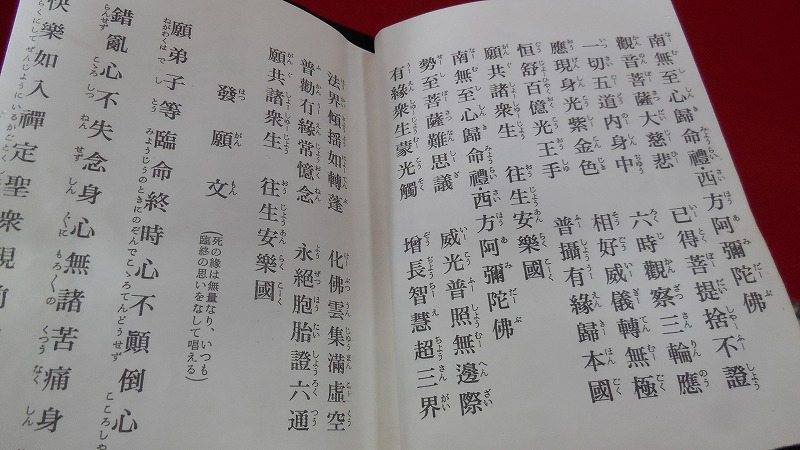 南無至心歸命禮西方阿彌陀佛
觀音菩薩大慈悲　已得菩提捨不證
一切五道內身中　六時觀察三輪應
應現身光紫金色　相好威儀轉無極
恒舒百億光王手　普攝有緣歸本國
願共諸衆生　往生安樂國
南無至心歸命禮西方阿彌陀佛
勢至菩薩難思議　威光普照無邊際
有緣衆生蒙光觸　增長智慧超三界
法界傾搖如轉蓬　化佛雲集滿虛空
普勸有緣常憶念　永絕胞胎證六通
願共諸衆生　往生安樂國
發願文
(死の緣は無量なり、いつも
臨終の思いをなして唱える)
願弟子等臨命終時心不顚倒心
錯亂心不失念身心無諸苦痛身
快樂如入禪定聖衆現前